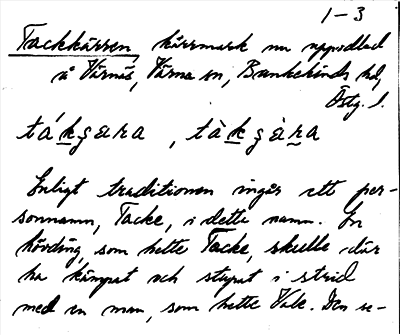 1-3
Tackkärren, kärrmark nu uppodlad
å Värnäs, Värna sn, Bankekinds hd,
Östg. l.
tákʂära, tàkʂära
Enligt traditionen ingår ett per-
sonnamn, Tacke, i detta namn. En
hövding, som hette Tacke, skulle där
ha kämpat och stupat i strid
med en man, som hette Vale. Den se-